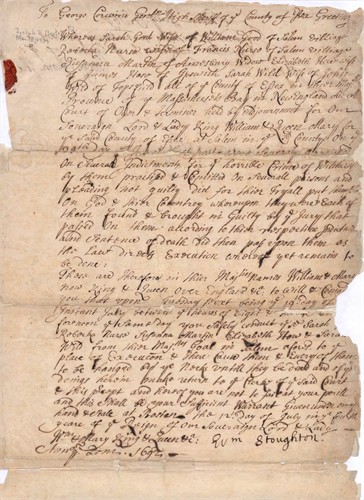 To George Corwine Gentlm High Sheriff of ye County of Essex Greeting
Whereas Sarah Good Wife of William Good of Salem Village
Rebecka Nurse wife of Francis Nurse of Salem Villige
Susanna Martin of Amesbury Widow Elizabeth How wife
of James How of Ipswich Sarah Wild Wife of John
Wild of Topsfield all of ye County of Essex in their Majts
Province of ye Massachusetts Bay in New England
Court of Oyer & Terminer held by adjournment for Our
Soveraign Lord & Lady King William & Queen Mary for
ye said County of Essex at Salem in ye said County on
day of
on Severall Indictments for ye horrible Crime of Witchcraft
by them practised & Comitted On Severall persons and
pleading not guilty did for their Tryall put themselves
on God & their Countrey whereupon they were Each of
them found & brought in Guilty by ye Jury that
passed On them according to their respective Indictments
and Sentence of death did then pass upon them as
the Law directs Execution whereof yet remains to
be done:
Those are Therefore in their Majties names William & Mary
now King & Queen over England &c to Will & Comand
you that upon Tuesday next being ye 19th day of
Instant July between ye houres of Eight &
forenoon ye same day you Safely conduct ye sd Sarah
Rebecka Nurse Susanna Martin Elizabeth How & Sarah
Wild from their Majties Goal in Salem aforesd to ye
place of Execution & there Cause them & Every of them
to be hanged by ye Neck untill they be dead and of ye
doings herein make return to ye Clerk of ye said Court
& this precept And hereof you are not to fail at your perill
and this Shall be your Sufficient Warrant Given under my
hand & seale at Boston the 12th day of July in ye fourth
yeare of ye Reign of our Soveraigne Lord & Lady
Wm & Mary King & Queen &c:
Wm Stoughton
Annoq Dom: 1692